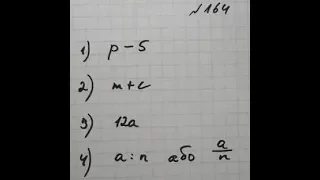 №164
1) p - 5
2) m + c
3) 12a
4) a : n або a/n